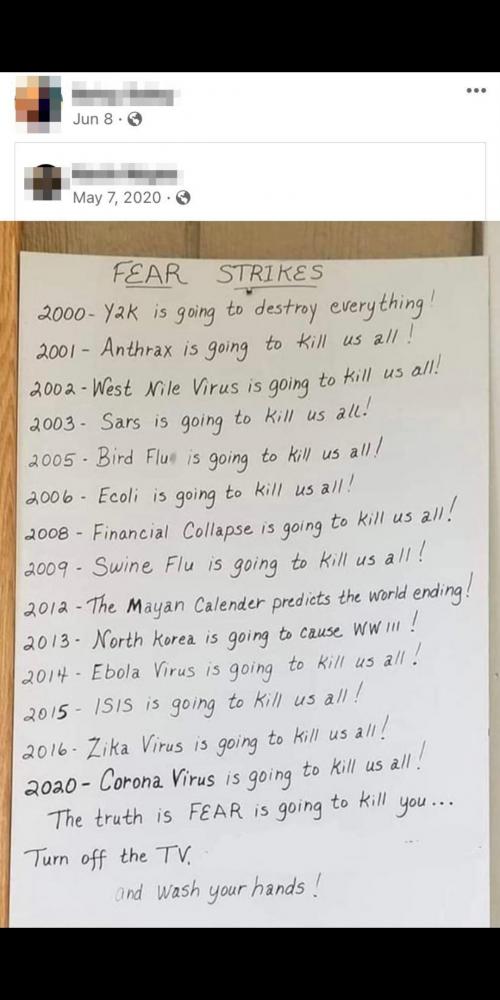 Jun 8 ·
May 7, 2020 ·
FEAR STRIKES
2000- Y2K is going to destroy everything!
2001 - Anthrax is going to kill us all!
2002 - West Nile Virus is going to kill us all!
2003 - Sars is going to kill us all!
2005 - Bird Flu is going to kill us all!
2006 - Ecoli is going to kill us all!
2008 - Financial Collapse is going to kill us all!
2009 - Swine Flu is going to kill us all!
2012 - The Mayan Calender predicts the world ending!
2013 - North Korea is going to cause WW III!
2014 - Ebola Virus is going to kill us all!
2015 - ISIS is going to kill us all!
2016 - Zika Virus is going to kill us all!
2020 - Corona Virus is going to kill us all!
The truth is FEAR is going to kill you...
Turn off the TV.
and wash your hands!